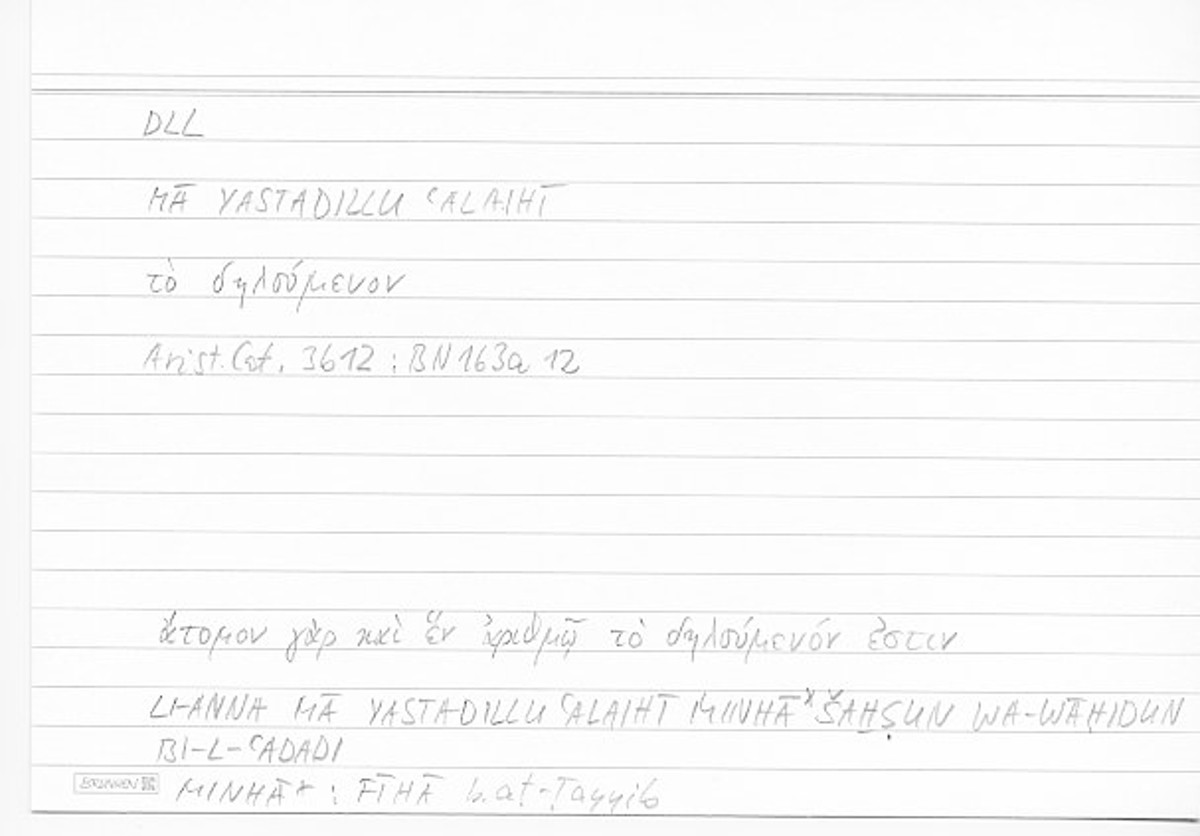 DLL
MĀ YASTADILLU ʿALAIHĪ
τὸ δηλούμενον
Arist. Cat. 3b12 : BN 163a 12
ἄτομον γὰρ καὶ ἓν ἀριθμῷ τὸ δηλούμενόν ἐστιν
LI-ANNA MĀ YASTADILLU ʿALAIHĪ MINHĀ* ŠAḪṢUN WA-WĀḤIDUN
BI-L-ʿADADI
BRUNNEN MINHĀ* : FĪHĀ b. aṭ-Ṭayyib